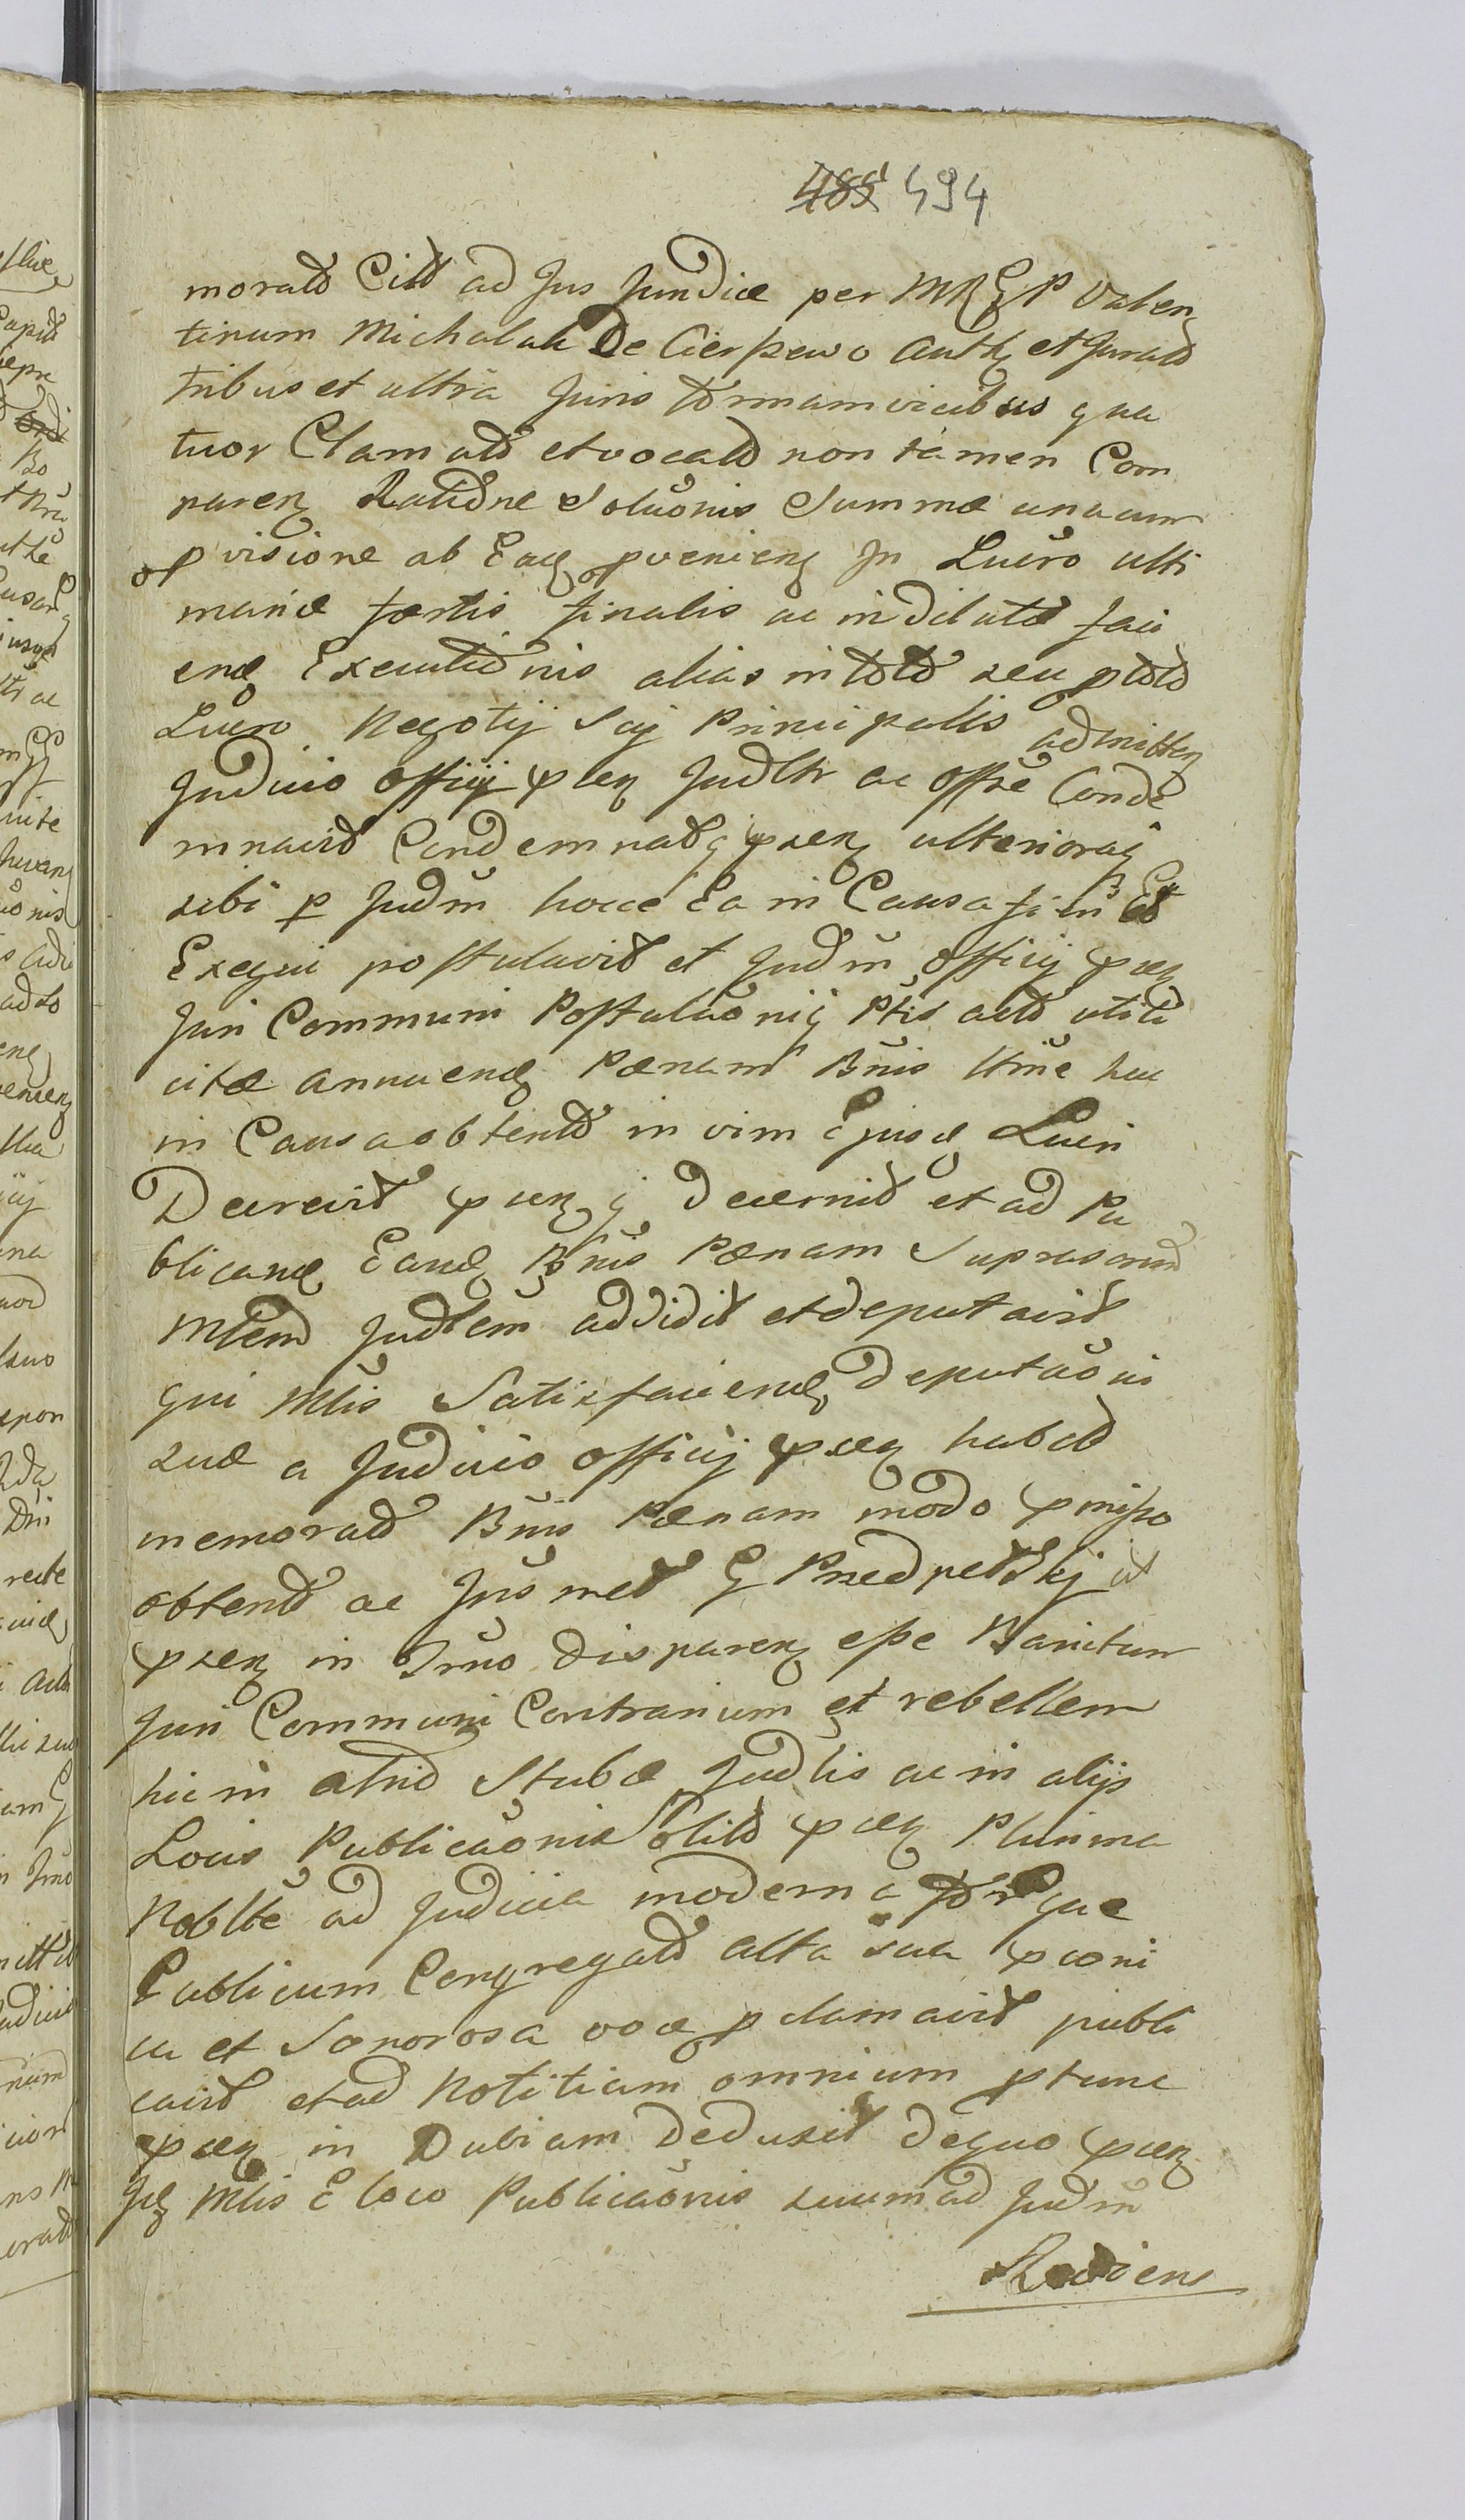 485 494
morat Citt ad Jus Juridice per MR G P Valen
tinum Michalak De Cierpewo Auth et Jurat
tribus et ultra Juris formam vicibus qua
tuor Clamat et vocat non tamen Com
paren Ratione Soluonis Summæ unacum
pvisione ab Eaq pvenien In Lucro ulti
mariæ fortis finalis ac indilatæ faci
end Executionis alias in toto seu ptoto
Lucro Negotij Sui Principalis admitten
Judicio Officij psen Judltr ac Offse Conde
mnavit Condemnatq psen ulteriorag
sibi p Judm hocce Ea in Causa fieri Et
Exequi postulavit et Judm Officij psen
Juri Communi Postulaonig Ptis act utili
citæ annuend Pænam Bnis ltrme hac
in Causa obtent in vim Ejusd Lucri
Decrevit psenq decernit et ad Pu
blicand Eand Bnis Pænam Suprascript
Mlem Judlem addidit et deputavit
qui Mlis Satisfaciend deputaoni
suæ a Judicio Officij psen habit
memorat Bnis Pænam modo pmisso
obtent ac Jus met G Przedpetskj ut
psen in Trno disparen esse Banitum
Juri Communi Contrarium et rebellem
hic in atrio Stubæ Judlis ac in alijs
Locis Publicaonis Solit psen Plurima
Noblte ad Judicia moderna
Publicum Congregat alta sua pconi
ca et Sonorosa voce pclamavit publi
cavit et ad Notitiam omnium ptunc
psen in Dubiam Deduxit dequo psen
Id Mlis E loco Publicaonis suum ad Judm
Rediens